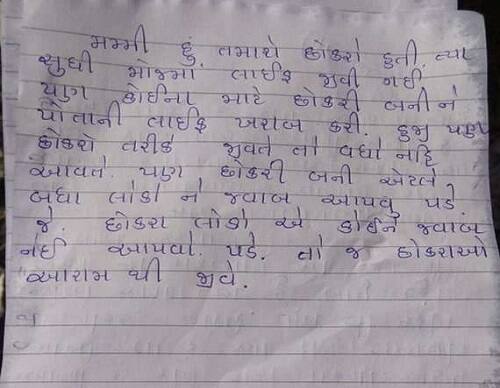 મમ્મી હું તમારો છોકરો હતી ત્યા
સુધી મોજમાં લાઈફ જીવી નઈ
પણ કોઈના માટે છોકરી બની ને
પોતાની લાઈફ ખરાબ કરી. હજી પણ
છોકરો તરીકે જીવતે તો વધાં નહિ
આવતે. પણ છોકરી બની એટલે
બધા લોકો ને જવાબ આપવુ પડે.
જે. છોકરા લોકો એ કોઈને જવાબ
નઈ આપવો. પડે. તો જ છોકરાઓ
આરામ થી જીવે.